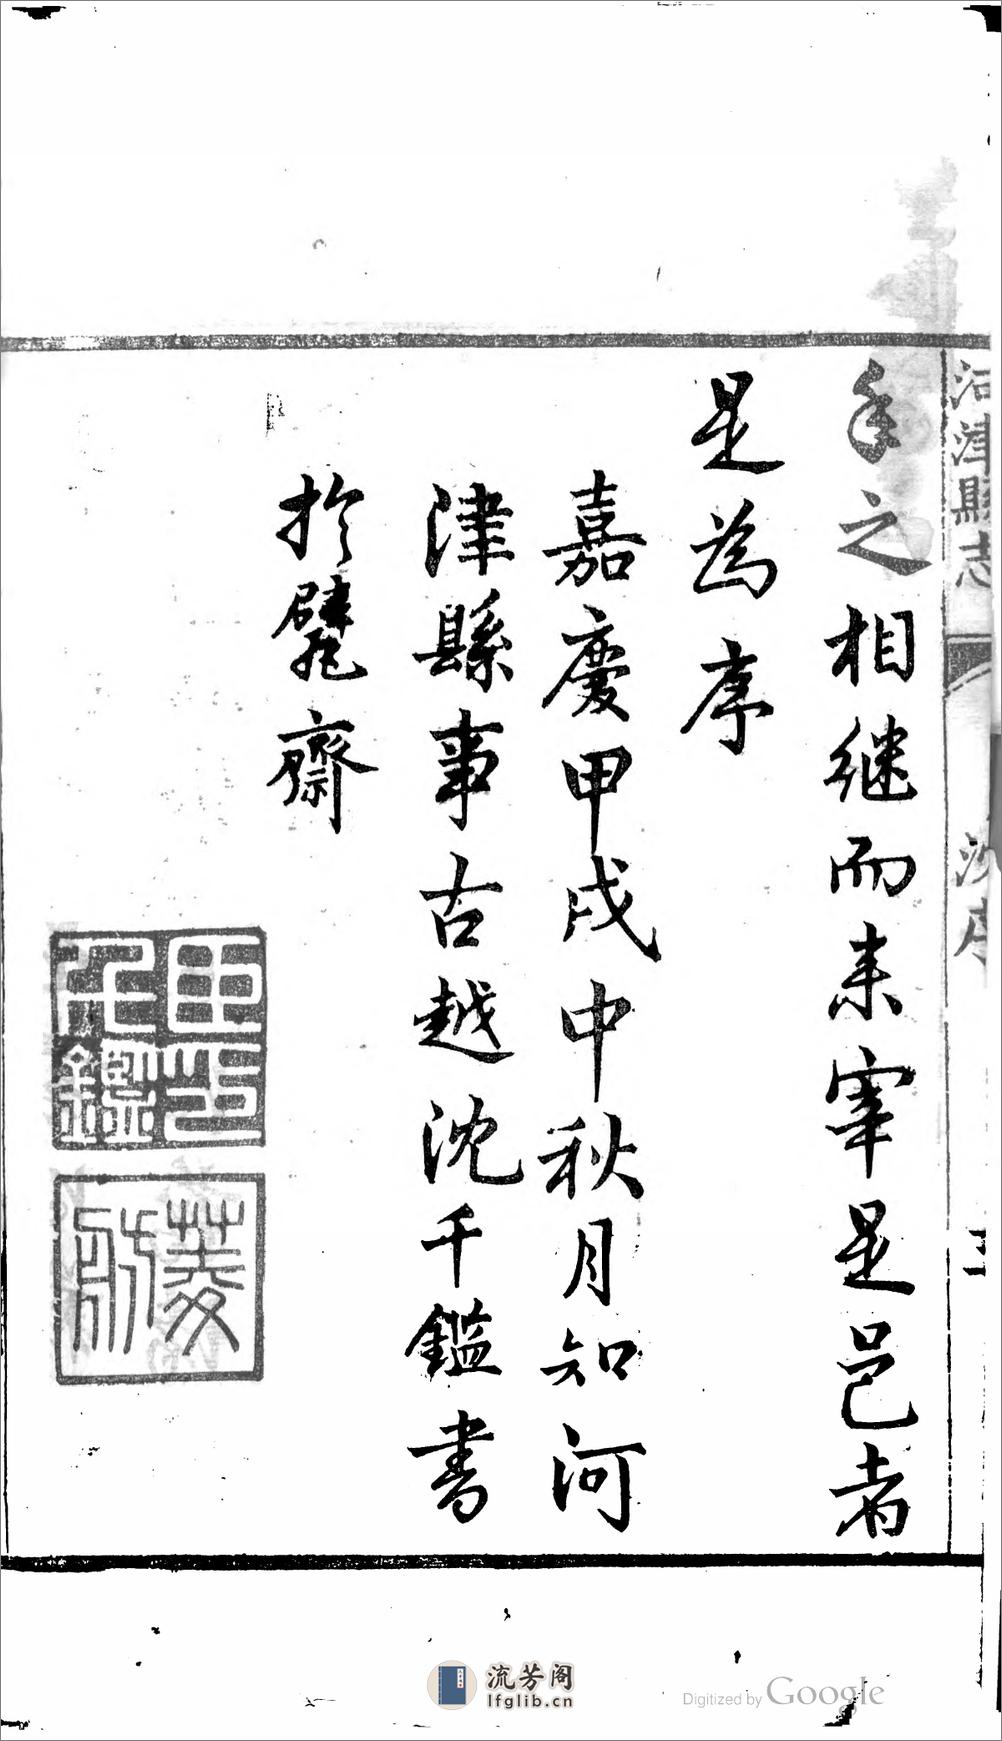 河津縣志 沈序
之相継而来宰是邑者
是為序
嘉慶甲戌中秋月知河
津縣事古越沈千鑑書
於 齋
臣印千鑑
菱舫
流芳阁
lfglib.cn
Digitized by Google